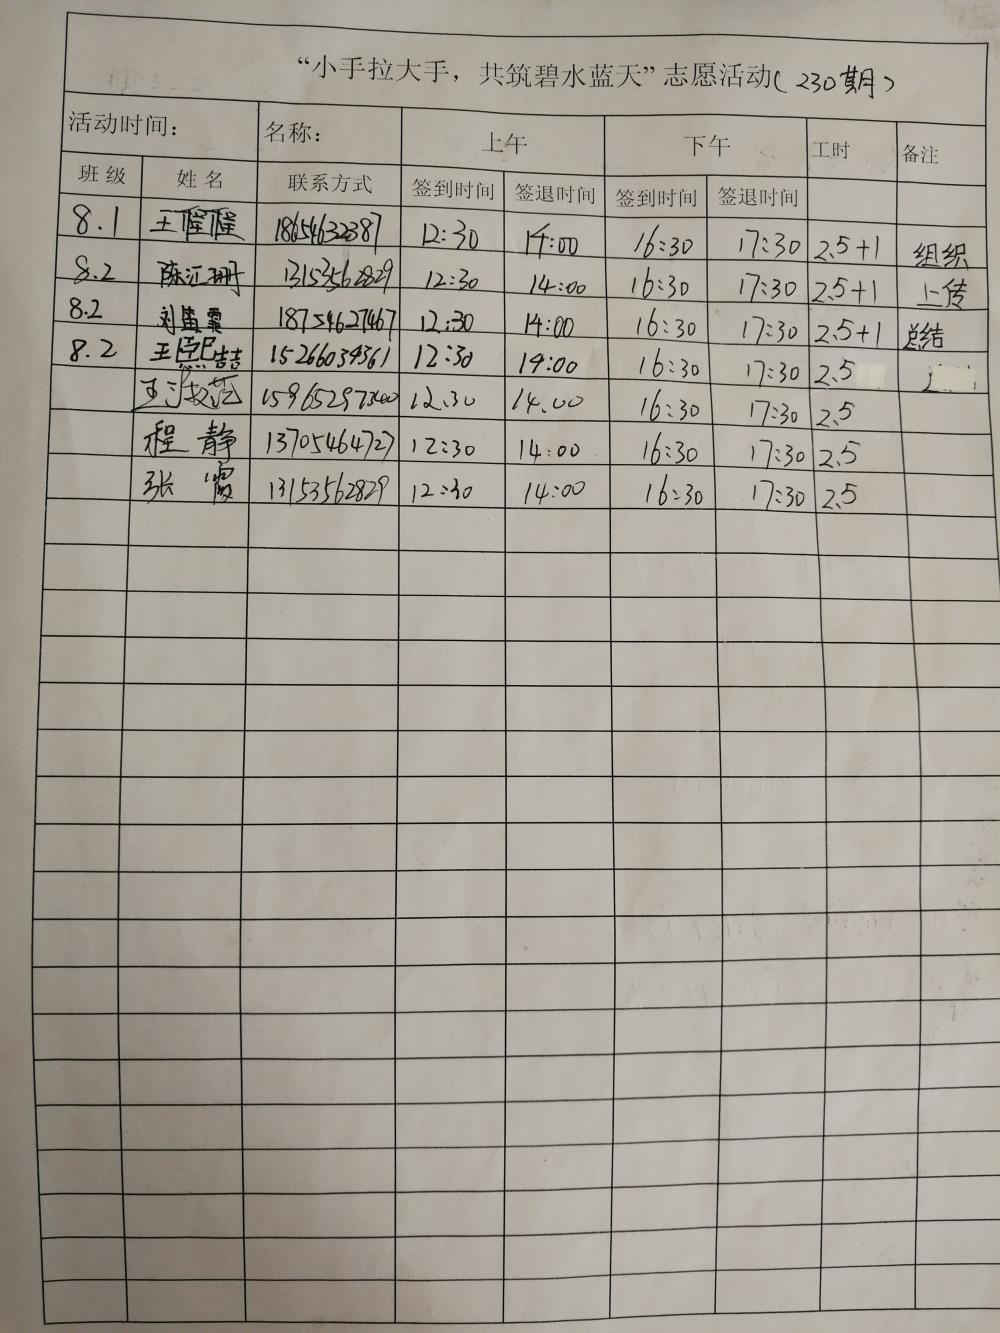 “小手拉大手，共筑碧水蓝天”志愿活动（230期）
活动时间： 名称： 上午 下午 工时 备注
班级 姓名 联系方式 签到时间 签退时间 签到时间 签退时间
8.1 王 18654632387 12:30 14:00 16:30 17:30 2.5+1 组织
8.2 陈汇珊 13153562829 12:30 14:00 16:30 17:30 2.5+1 上传
8.2 刘 18754627467 12:30 14:00 16:30 17:30 2.5+1 总结
8.2 王熙喆 15266039361 12:30 14:00 16:30 17:30 2.5
王淑范 12:30 14:00 16:30 17:30 2.5
程静 13705464727 12:30 14:00 16:30 17:30 2.5
张霞 13153562829 12:30 14:00 16:30 17:30 2.5